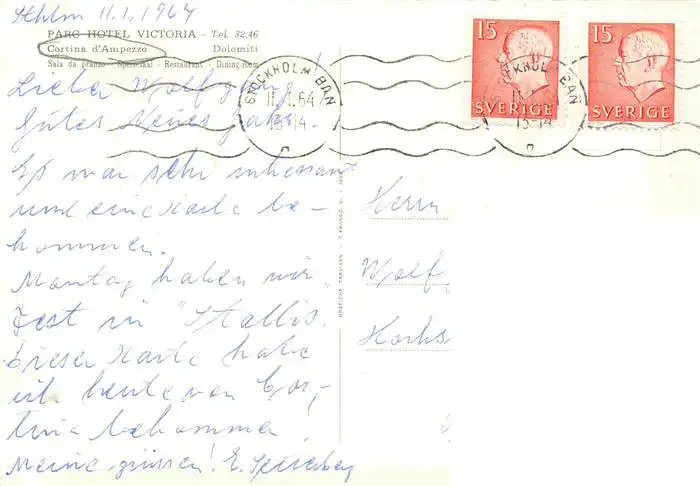 Sthlm 11.1.1964
PARC HOTEL VICTORIA - Tel. 32.46
Cortina d'Ampezzo Dolomiti
Sala da pranzo - Speisesaal - Restaurant - Dining-room
Lieber Wolfgang
Gutes Neues Jahr.
Es war sehr interessant
und eine Karte be-
kommen.
Montag haben wir
Fest in "Stallis.
Dieser Karte habe
ich heute von Cor-
tina bekommen!
Meine grüssen! E.
15
SVERIGE
15
SVERIGE
STOCKHOLM BAN
11.1.64
13-14
STOCKHOLM BAN
13-14
GRAFICHE TREVISAN
Herrn
Wolfg
Hochs